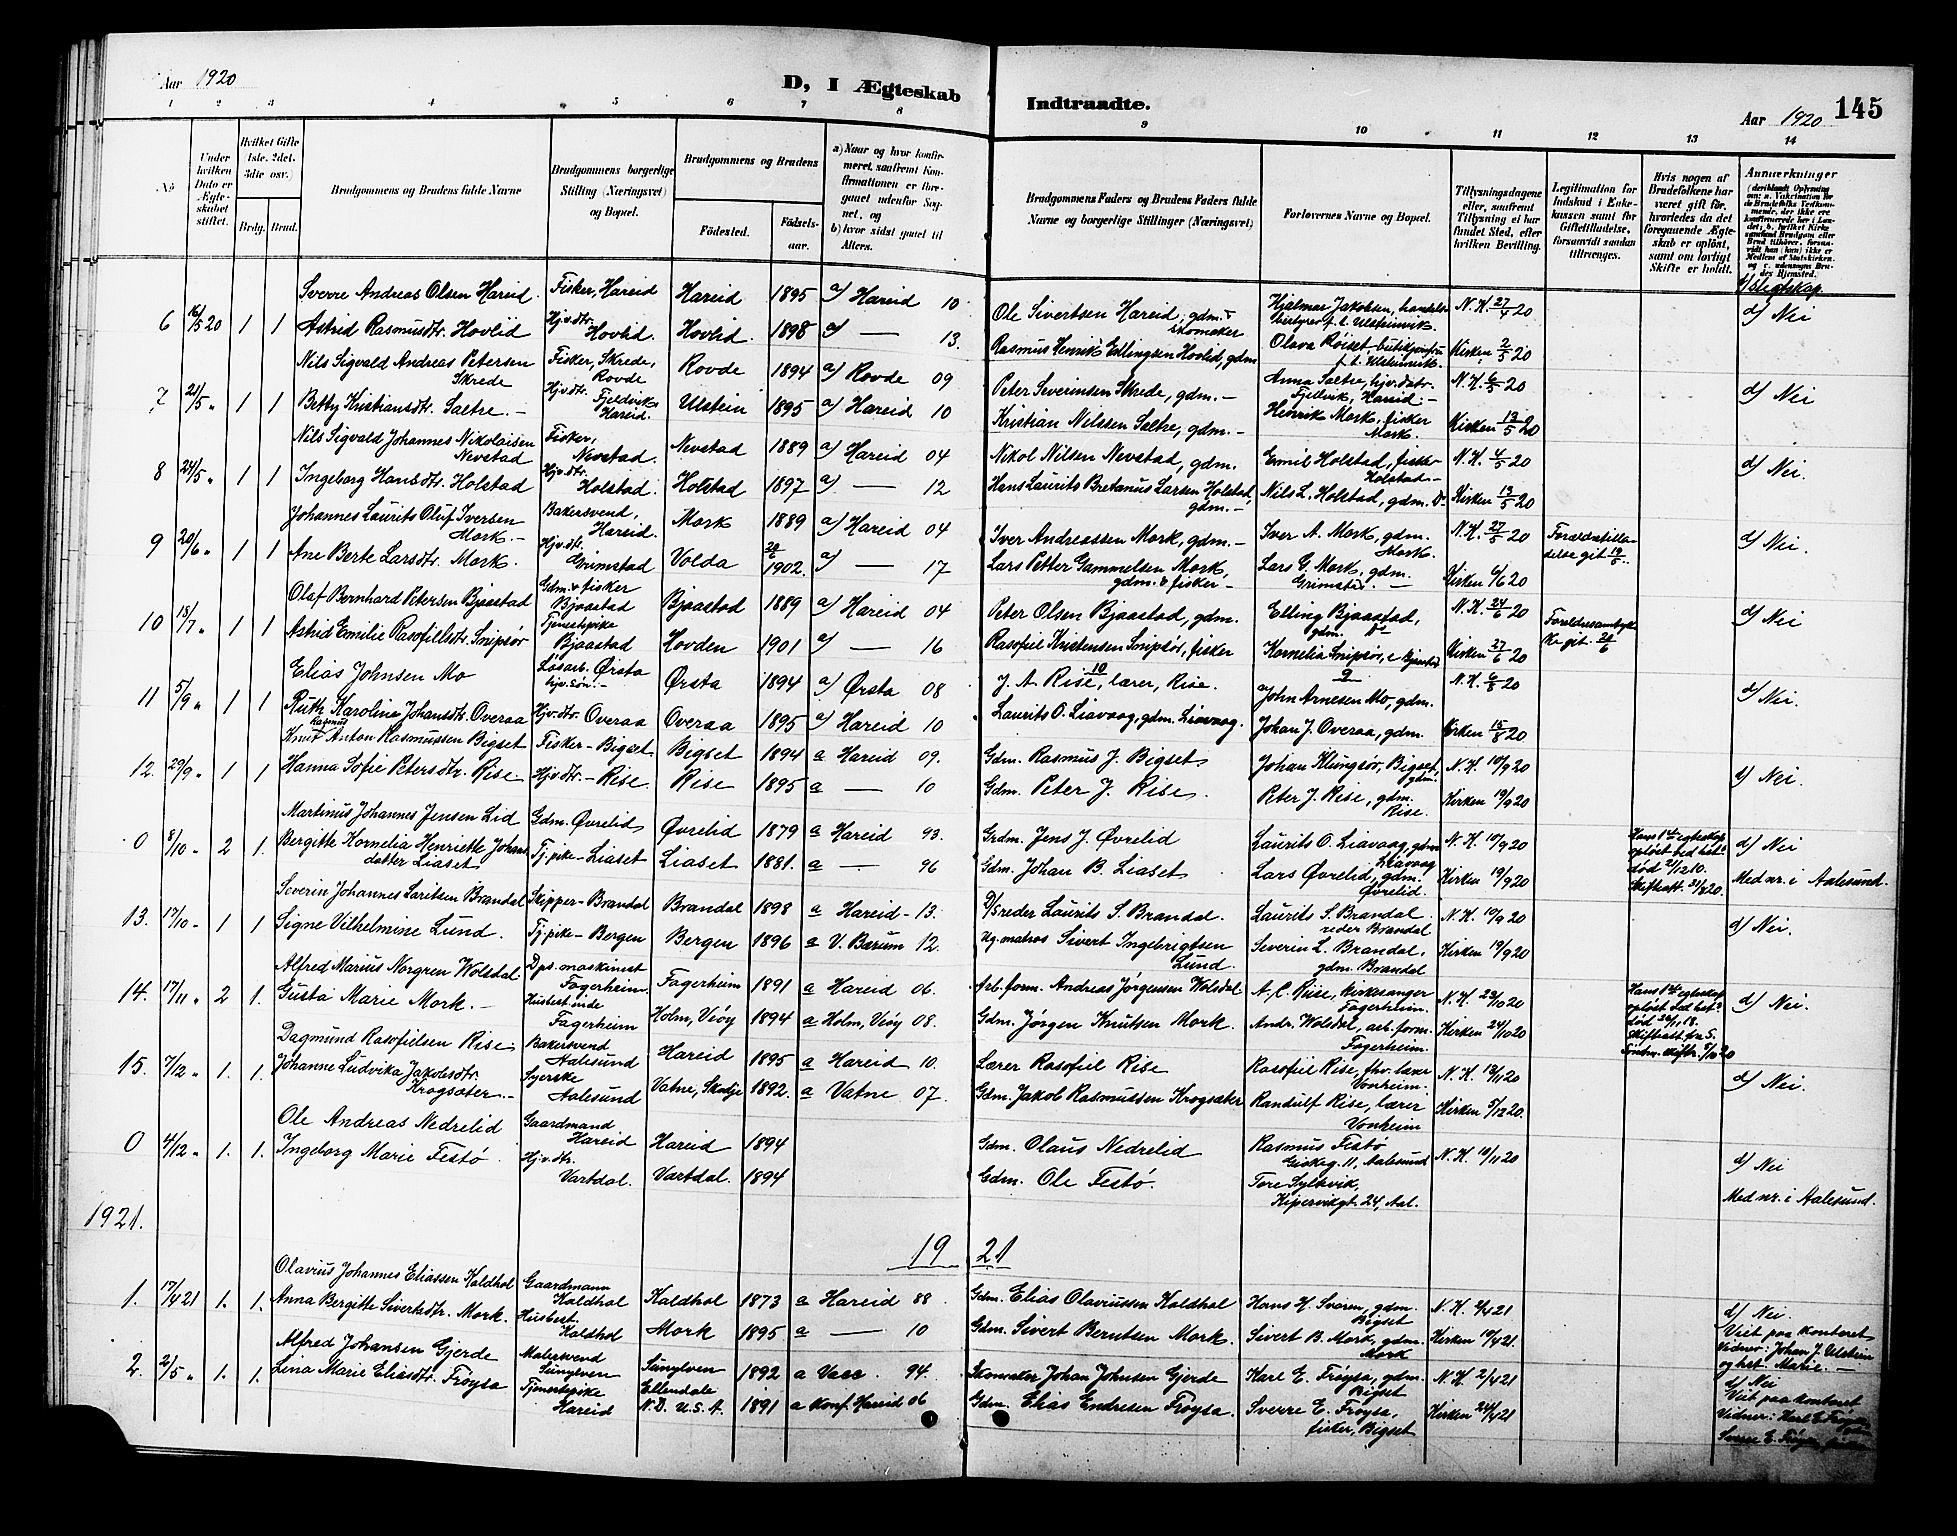 Aar 1920
D, I Ægteskab Indtraadte.
Aar 1920
145
1 2 3 4 5 6 7 8 9 10 11 12 13 14
No
Under hvilken Dato er Ægteskabet stiftet.
Hvilket Gifte 1ste. 2det. 3die osv.)
Brdg. Brud.
Brudgommens og Brudens fulde Navne
Brudgommens borgerlige Stilling (Næringsvei) og Bopæl.
Brudgommens og Brudens
Födested.
Födselsaar.
a) Naar og hvor konfirmeret, saafremt Konfirmationen er foregaaet udenfor Sognet, og b) hvor sidst gaaet til Alters.
Brudgommens Faders og Brudens Faders fulde Navne og borgerlige Stillinger (Næringsvei)
Forlovernes Navne og Bopæl.
Tillysningsdagene eller, saafremt Tillysning ei har fundet Sted, efter hvilken Bevilling.
Legitimation for Indskud i Enkekassen samt for Giftetilladelse, forsaavidt saadan tiltrænges.
Hvis nogen af Brudefolkene har været gift för, hvorledes da det foregaaende Ægteskab er oplöst, samt om lovligt Skifte er holdt.
Anmærkninger
d/ Slegtskap
Sverre Andreas Olsen Hareid. Fisker, Hareid Hareid 1895 a/ Hareid 10
6 16/5 20 1 1 Astrid Rasmusdtr. Hovlid Hj.v.dtr. Hovlid. Hovlid. 1898 a/ — 13.
Ole Sivertsen Hareid, gdm. & skomaker Hjalmar Jakobsen, handelsbestyrer f. t. Ulsteinvik. N.K. 27/4 20 d/ Nei
Rasmus Henrik Edlingsen Hovlid, gdm Olava Röiset, f. t. Ulsteinvik. Kirken 2/5 20
Nils Sigvald Andreas Petersen Skrede Fisker, Skrede, Rovde Rovde 1894 a/ Rovde 09
7 21/5 " 1 1 Betty Kristiansdtr. Saltre. — Hjv.dtr. Fjeldvik Hareid. Ulstein 1895 a/ Hareid 10
Peter Severinsen Skrede, gdm. — Anna Saltre, hjv.datr. Fjellvik, Hareid. — N.K. 6/5 20 d/ Nei
Kristian Nilssen Saltre, gdm. — Henrik Mork, fisker Mork. Kirken 13/5 20
Nils Sigvald Johannes Nikolaisen Nevstad Fisker, Nevstad. Nevstad 1889 a/ Hareid 04
8 24/5 " 1 1 Ingeborg Hansdtr. Holstad Hj.v.dtr. Holstad. Holstad 1897 a/ — 12
Nikol Nilsen Nevstad, gdm. Emil Holstad, fisker Holstad — N.K. 4/5 20 d/ Nei.
Hans Laurits Bretanus Larsen Holstad, gdm. — Nils L. Holstad, gdm. Do Kirken 13/5 20
Johannes Laurits Oluf Iversen Mork. — Bakersvend, Hareid. Mork 1889 a/ Hareid 04
9 20/6 " 1 1 Ane Berte Larsdtr. Mork. Hjv.dtr. Grimstad Volda 1902. a/ — 17
Iver Andreassen Mork, gdm. — Iver A. Mork, gdm. Mork N.K. 27/5 20 d/ Nei.
Lars Petter Gammelsen Mork, gdm. & fisker — Lars G. Mork, gdm. Grimstad. — Kirken 6/6 20
Olaf Bernhard Petersen Bjaastad Gdm. & fisker Bjaastad Bjaastad 1889 a/ Hareid 04
10 18/7 " 1 1 Astrid Emilie Rasofilsdtr. Snipsör Tjenestepike Bjaastad Hovden 1901 a/ — 16
Peter Olsen Bjaastad, gdm. Elling Bjaastad, gdm. Do N.K. 24/6 20 d/ Nei
Rasofiel Kristensen Snipsör, fisker Kornelia Snipsör, Kirken 27/6 20
Elias Johnsen Mo Lösarb. Ørsta hjv.sön. — Ørsta 1894 a/ Ørsta 08
11 5/9 " 1 1 Ruth Karoline Johansdtr. Overaa Hjv.dtr. Overaa Overaa 1895 a/ Hareid 10
J. A. Rise, lærer, Rise. John Arnesen Mo, gdm. N.K. 6/8 20 d/ Nei.
Laurits O. Liavaag, gdm. Liavaag. Johan J. Overaa, gdm. Kirken 15/8 20
Knut Rasmus Anton Rasmussen Bigset Fisker — Bigset Bigset 1894 a Hareid 09.
12. 29/9 " 1 1 Hanna Sofie Petersdtr. Rise Hjv.dtr. — Rise. Rise 1895 a — 10
Gdm. Rasmus J. Bigset Johan Klungsör, Bigset, gdm. N.K. 10/9 20 d/ Nei.
Gdm. Peter J. Rise. Peter J. Rise, gdm. Rise. Kirken 19/9 20
Martinus Johannes Jensen Lid Gdm. Øvrelid Øvrelid 1879 a Hareid 93.
0 8/10 " 2 1. Bergitte Kornelia Henriette Johansdatter Liaset Tj.pike — Liaset Liaset 1881. a — 96
Grdm. Jens J. Øvrelid Laurits O. Liavaag, gdm Liavaag N.K. 10/9 20 Hans 1ste egteskap oplöst ved død 21/12 10. Skifteatt. 21/8 20. d/ Nei
Gdm. Johan B. Liaset Lars Øvrelid, gdm. Øvrelid Kirken 19/9 20 Med nr. i Aalesund.
Severin Johannes Laritsen Brandal Skipper — Brandal Brandal 1898 a Hareid — 13.
13. 17/10 " 1 1 Signe Vilhelmine Lund. Tj.pike — Bergen Bergen 1896 a V. Bærum 12.
D/S reder Laurits S. Brandal. Laurits S. Brandal reder Brandal N.K. 10/9 20 d/ Nei.
Kg. matros Sivert Ingebrigtsen Lund. Severin L. Brandal, gdm. Brandal Kirken 19/9 20
Alfred Marius Norgren Wolsdal Dps. maskinist Fagerheim. Fagerheim 1891 a Hareid 06.
14. 17/11 " 2 1. Gusta Marie Mork. — Husbestinde Fagerheim Holm, Veöy 1894 a Holm, Veöy 08.
Arb.form. Andreas Jørgensen Wolsdal A. C. Riise, kirkesanger Fagerheim. N.K. 23/10 20 Hans 1ste egteskap oplöst ved død 26/11 18. d/ Nei
Gdm. Jørgen Knutsen Mork. Andr. Wolsdal, arb.form. Fagerheim. Kirken 24/10 20
Dagmund Rasofielsen Rise. Bakersvend Aalesund Hareid 1895 a Hareid 10.
15. 7/12 " 1. 1. Johanne Ludvika Jakobsdtr. Krogsæter. — Syerske Aalesund Vatne, Skodje 1892. a Vatne 07.
Lærer Rasofiel Rise Rasofiel Rise, fhv. lærer Vonheim. N.K. 13/11 20 d/ Nei.
Gdm. Jakob Rasmussen Krogsæter Randulf Rise, lærer Vonheim Kirken 5/12 20.
Ole Andreas Nedrelid Gaardmand Hareid Hareid 1894
0 4/12 " 1. 1. Ingeborg Marie Festö. Hj.v.dtr. Vartdal. Vartdal. 1894
Gdm. Olaus Nedrelid Rasmus Festö Giskeg. 11, Aalesund N.K. 19/11 20 d/ Nei
Gdm. Ole Festö. Tore Sylkvik, Kipervikgt. 24, Aal. Med nr. i Aalesund.
1921.
19 21
Olavius Johannes Eliassen Kaldhol Gaardmann Kaldhol Kaldhol 1873 a Hareid 88
1. 17/4 21 1. 1. Anna Bergitte Sivertsdtr. Mork. Husbest. Kaldhol Mork 1895 a — 10
Gdm. Elias Olaviussen Kaldhol Hans H. Svoren, gdm. Bigset N.K. 2/4 21 d/ Nei
Gdm. Sivert Berntsen Mork. Sivert B. Mork, gdm. Mork Kirken 10/4 21. Viet paa kontoret Vidner: Johan J. Ulstein og hst. Marie —
Alfred Johansen Gjerde Malersvend Sunylven Sunylven 1892 a Vase 94.
2. 21/5 " 1. 1. Lina Marie Eliasdtr. Frøysa Tjenestepike Hareid Ellendale N.D. U.S.A. 1891 a Konf. Hareid 06
Skomaker Johan Johnsen Gjerde Karl E. Frøysa, gdm. Bigset N.K. 2/4 21 d/ Nei
Gdm. Elias Endresen Frøysa. Sverre E. Frøysa, fisker, Bigset Kirken 24/4 21 Viet paa kontoret Vidner: Karl E. Frøysa, Sverre E. Frøysa,